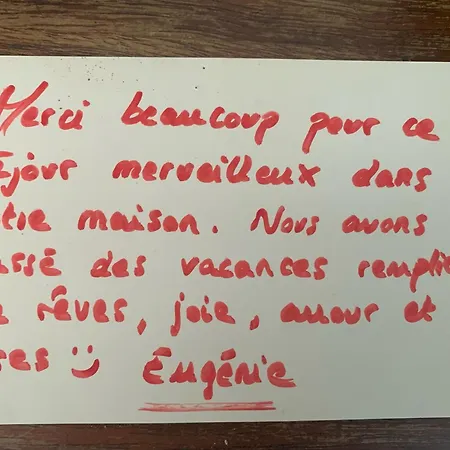 Merci beaucoup pour ce
éjour merveilleux dans
tre maison. Nous avons
assé des vacances remplie
rêves, joie, amour et
res
Eugénie